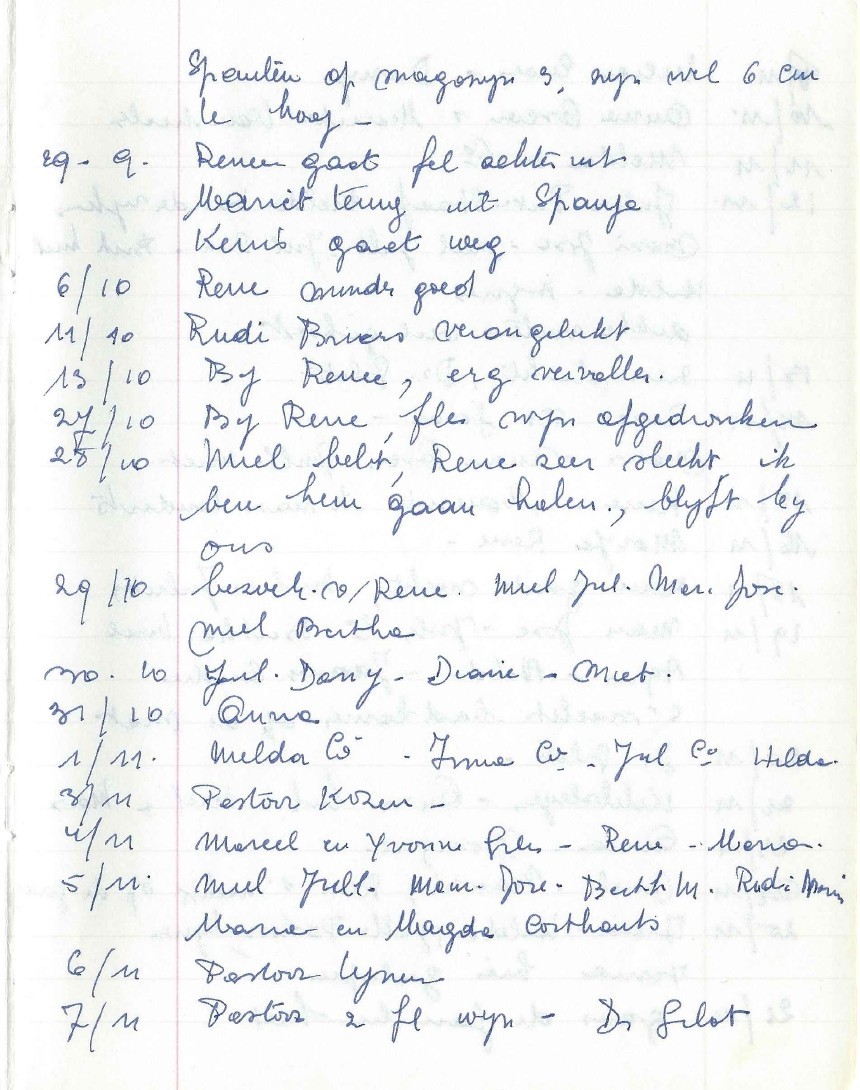 Spanten op magosyn 3, syn wel 6 cm
te hoog -
29 - 9. Renee gaat fel achteruit
Mariet terug uit Spanje
Kermis gaat weg
6/10 Rene minder goed
11/10 Rudi Briers verongelukt
13/10 By Renee, erg vervallen.
27/10 By Rene, fles wyn afgedronken
28/10 Miel belt, Rene zeer slecht ik
ben hem gaan halen., blyft by
ons
29/10 bezoek. v/Rene. Miel Jul. Mar. Jose.
Miel Bertha
30. 10 Jul. Dany - Diane - Miet.
31/10 Anna
1/11. Melda Co - Irma Co - Jul Co Hilda.
3/11 Pastoor Kozen -
4/11 Marcel en Yvonne - Rene - Maria.
5/11. Miel Jull. Mam. Jose. Berth M. Rudi
Maria en Magda Costhouts
6/11 Pastoor Lynen
7/11 Pastoor 2 fl wyn - Dr Gelot